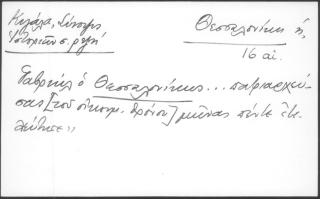 Κιγάλα, Σύνοψις
Ἱστοριῶν σ. ρεή
Θεσσαλονίκη ἡ,
16 αἰ.
Γαβριήλ ὁ Θεσσαλονίκης... πατριαρχεύ-
σας [τοῦ οἰκουμ. θρόνου] μῆνας πέντε ἐτε-
λεύτησε»